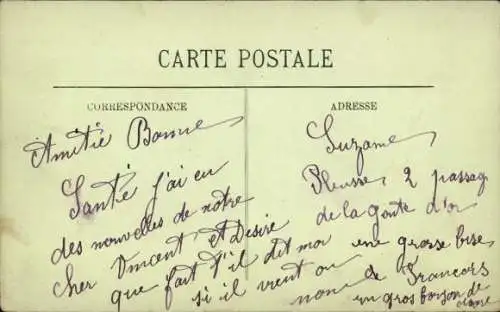 CARTE POSTALE
CORRESPONDANCE
ADRESSE
Amitié Bonne
Santé j'ai eu
des nouvelles de notre
cher Vincent et Desire
que fait t'il dit moi
si il vient ou
Suzanne
2 passage
de la goute d'or
une grosse bise
non de Francois
un gros de